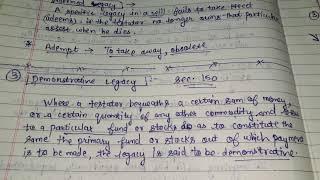 A specific legacy in a will fails to take effect
(adeems) if the testator no longer owns that particular
asset when he dies.
* Adempt → To take away, obsolese
③ Demonstrative Legacy :- Sec. 150
Where a testator bequeaths a certain sum of money,
or a certain quantity of any other commodity, and
to a particular fund or stocks so as to constitute the
same the primary fund or stocks out of which payment
is to be made, the legacy is said to be demonstrative.